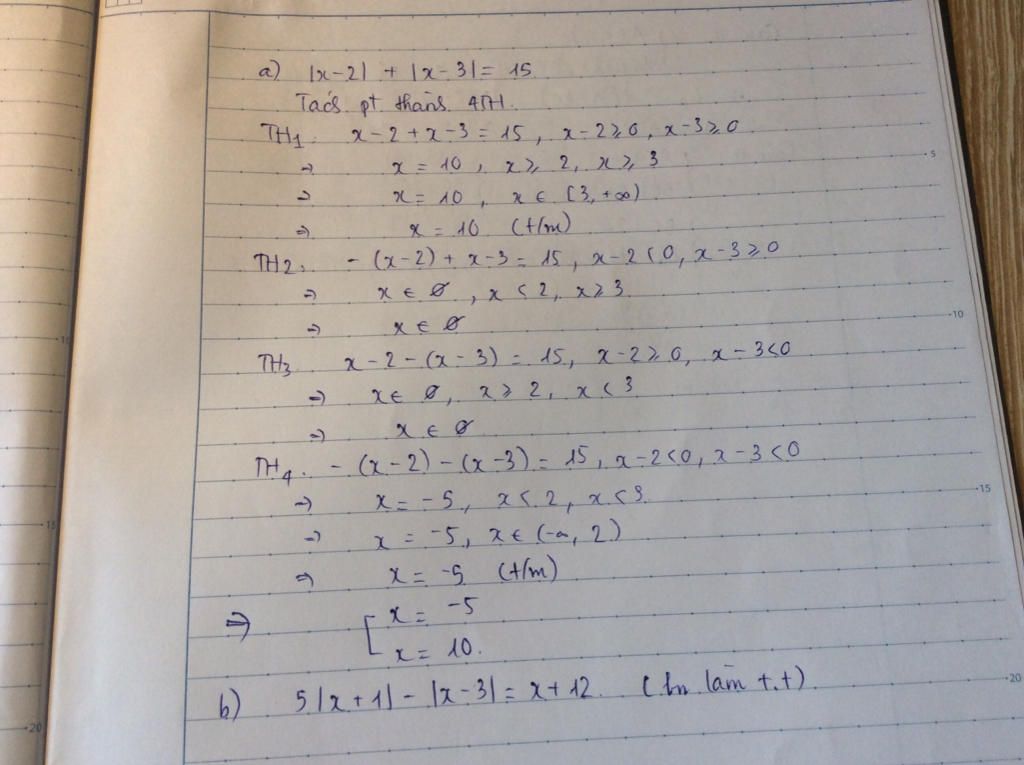 a) |x-2| + |x-3| = 15
Tách pt thành 4TH.
TH1. x-2+x-3 = 15, x-2≥0, x-3≥0
⇒ x = 10, x ≥ 2, x ≥ 3
⇒ x = 10, x ∈ [3, +∞)
⇒ x = 10 (t/m)
TH2. -(x-2) + x-3 = 15, x-2<0, x-3≥0
⇒ x ∈ ∅, x < 2, x ≥ 3
⇒ x ∈ ∅
TH3 x-2-(x-3) = 15, x-2≥0, x-3<0
⇒ x ∈ ∅, x ≥ 2, x < 3
⇒ x ∈ ∅
TH4. -(x-2)-(x-3) = 15, x-2<0, x-3<0
⇒ x = -5, x < 2, x < 3
⇒ x = -5, x ∈ (-∞, 2)
⇒ x = -5 (t/m)
⇒ [ x = -5
x = 10.
b) 5|x+1| - |x-3| = x+12. ( làm t.t)
5
10
15
20